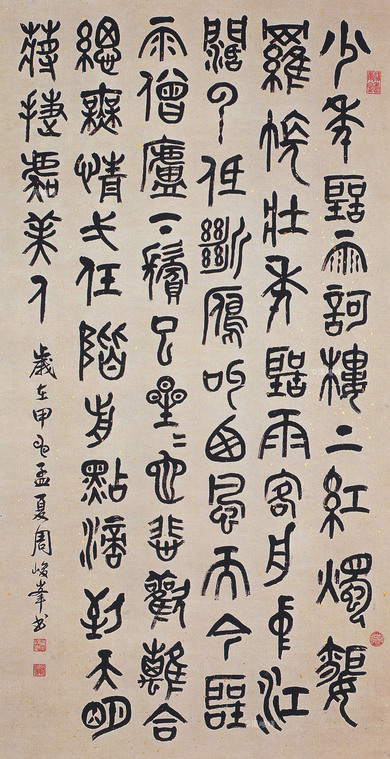 少年聽雨訶樓上紅燭昏
羅帳壯年聽雨客舟中江
闊雲低斷雁叫西風而今聽
雨僧廬下鬢已星〻也悲歡離合
總無情弌任階前點滴到天明
蔣捷虞美人
歲在甲孟夏周峻峯書